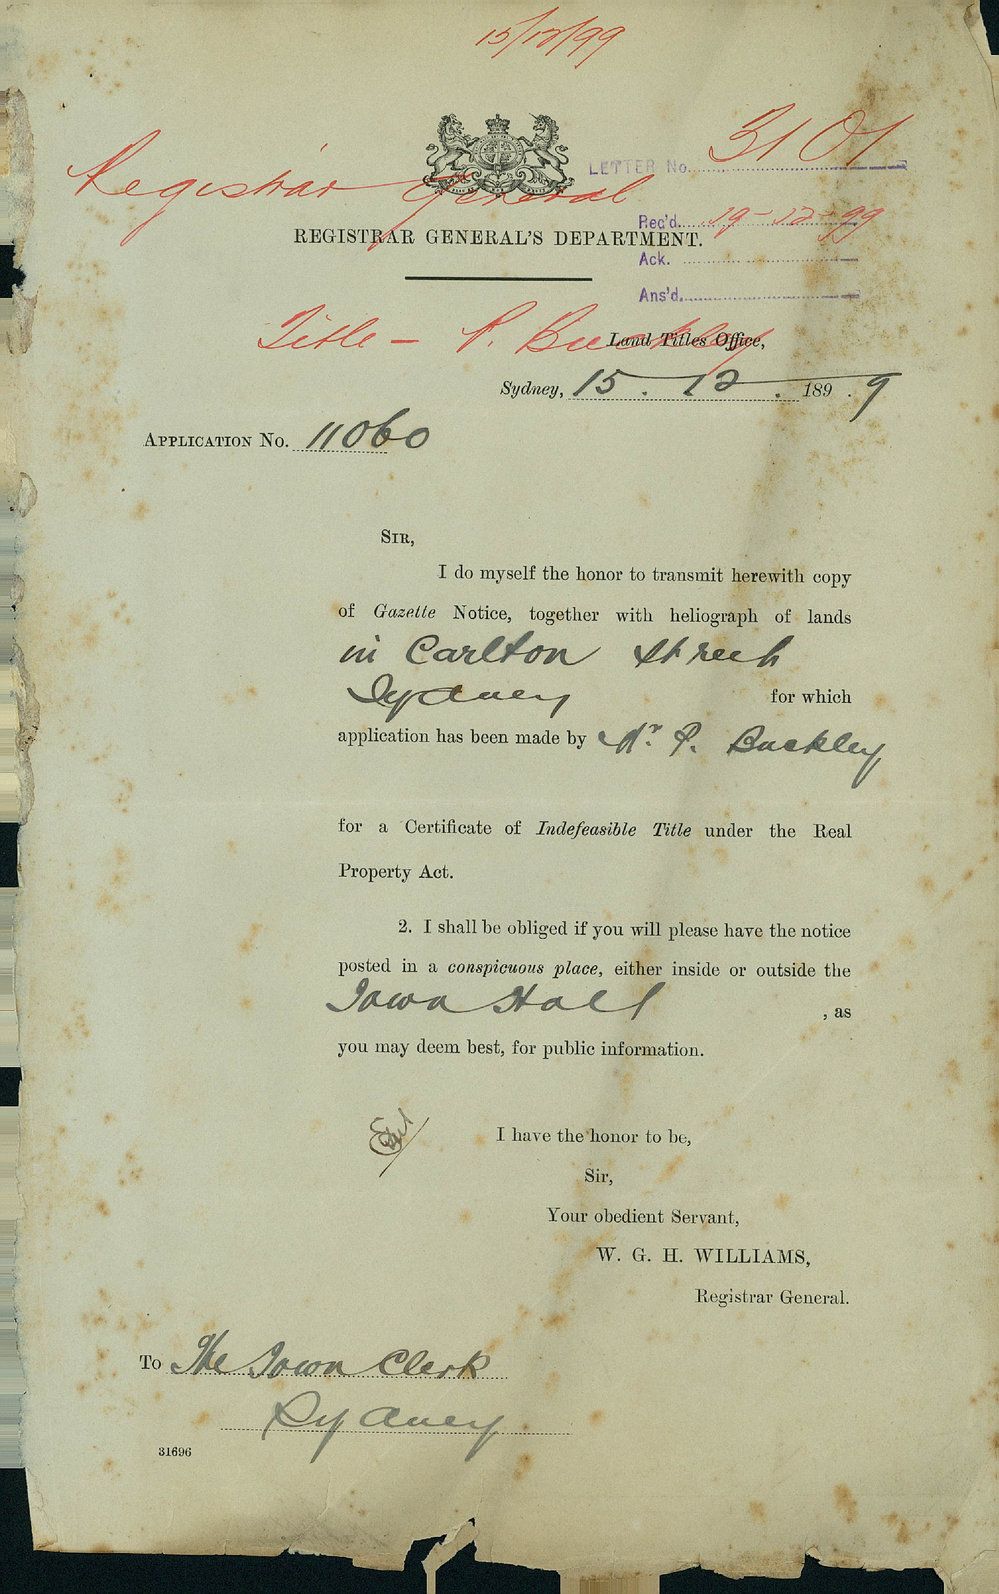 15/12/99
Registrar General
LETTER No. 3101
Rec'd. 19-12-99
REGISTRAR GENERAL'S DEPARTMENT.
Ack.
Ans'd.
Title - P. Buckley
Land Titles Office,
Sydney, 15 . 12 . 189 . 9
APPLICATION No. 11060
SIR,
I do myself the honor to transmit herewith copy
of Gazette Notice, together with heliograph of lands
in Carlton Street
Sydney for which
application has been made by Mr. P. Buckley
for a Certificate of Indefeasible Title under the Real
Property Act.
2. I shall be obliged if you will please have the notice
posted in a conspicuous place, either inside or outside the
Town Hall , as
you may deem best, for public information.
I have the honor to be,
Sir,
Your obedient Servant,
W. G. H. WILLIAMS,
Registrar General.
To The Town Clerk
Sydney
31696